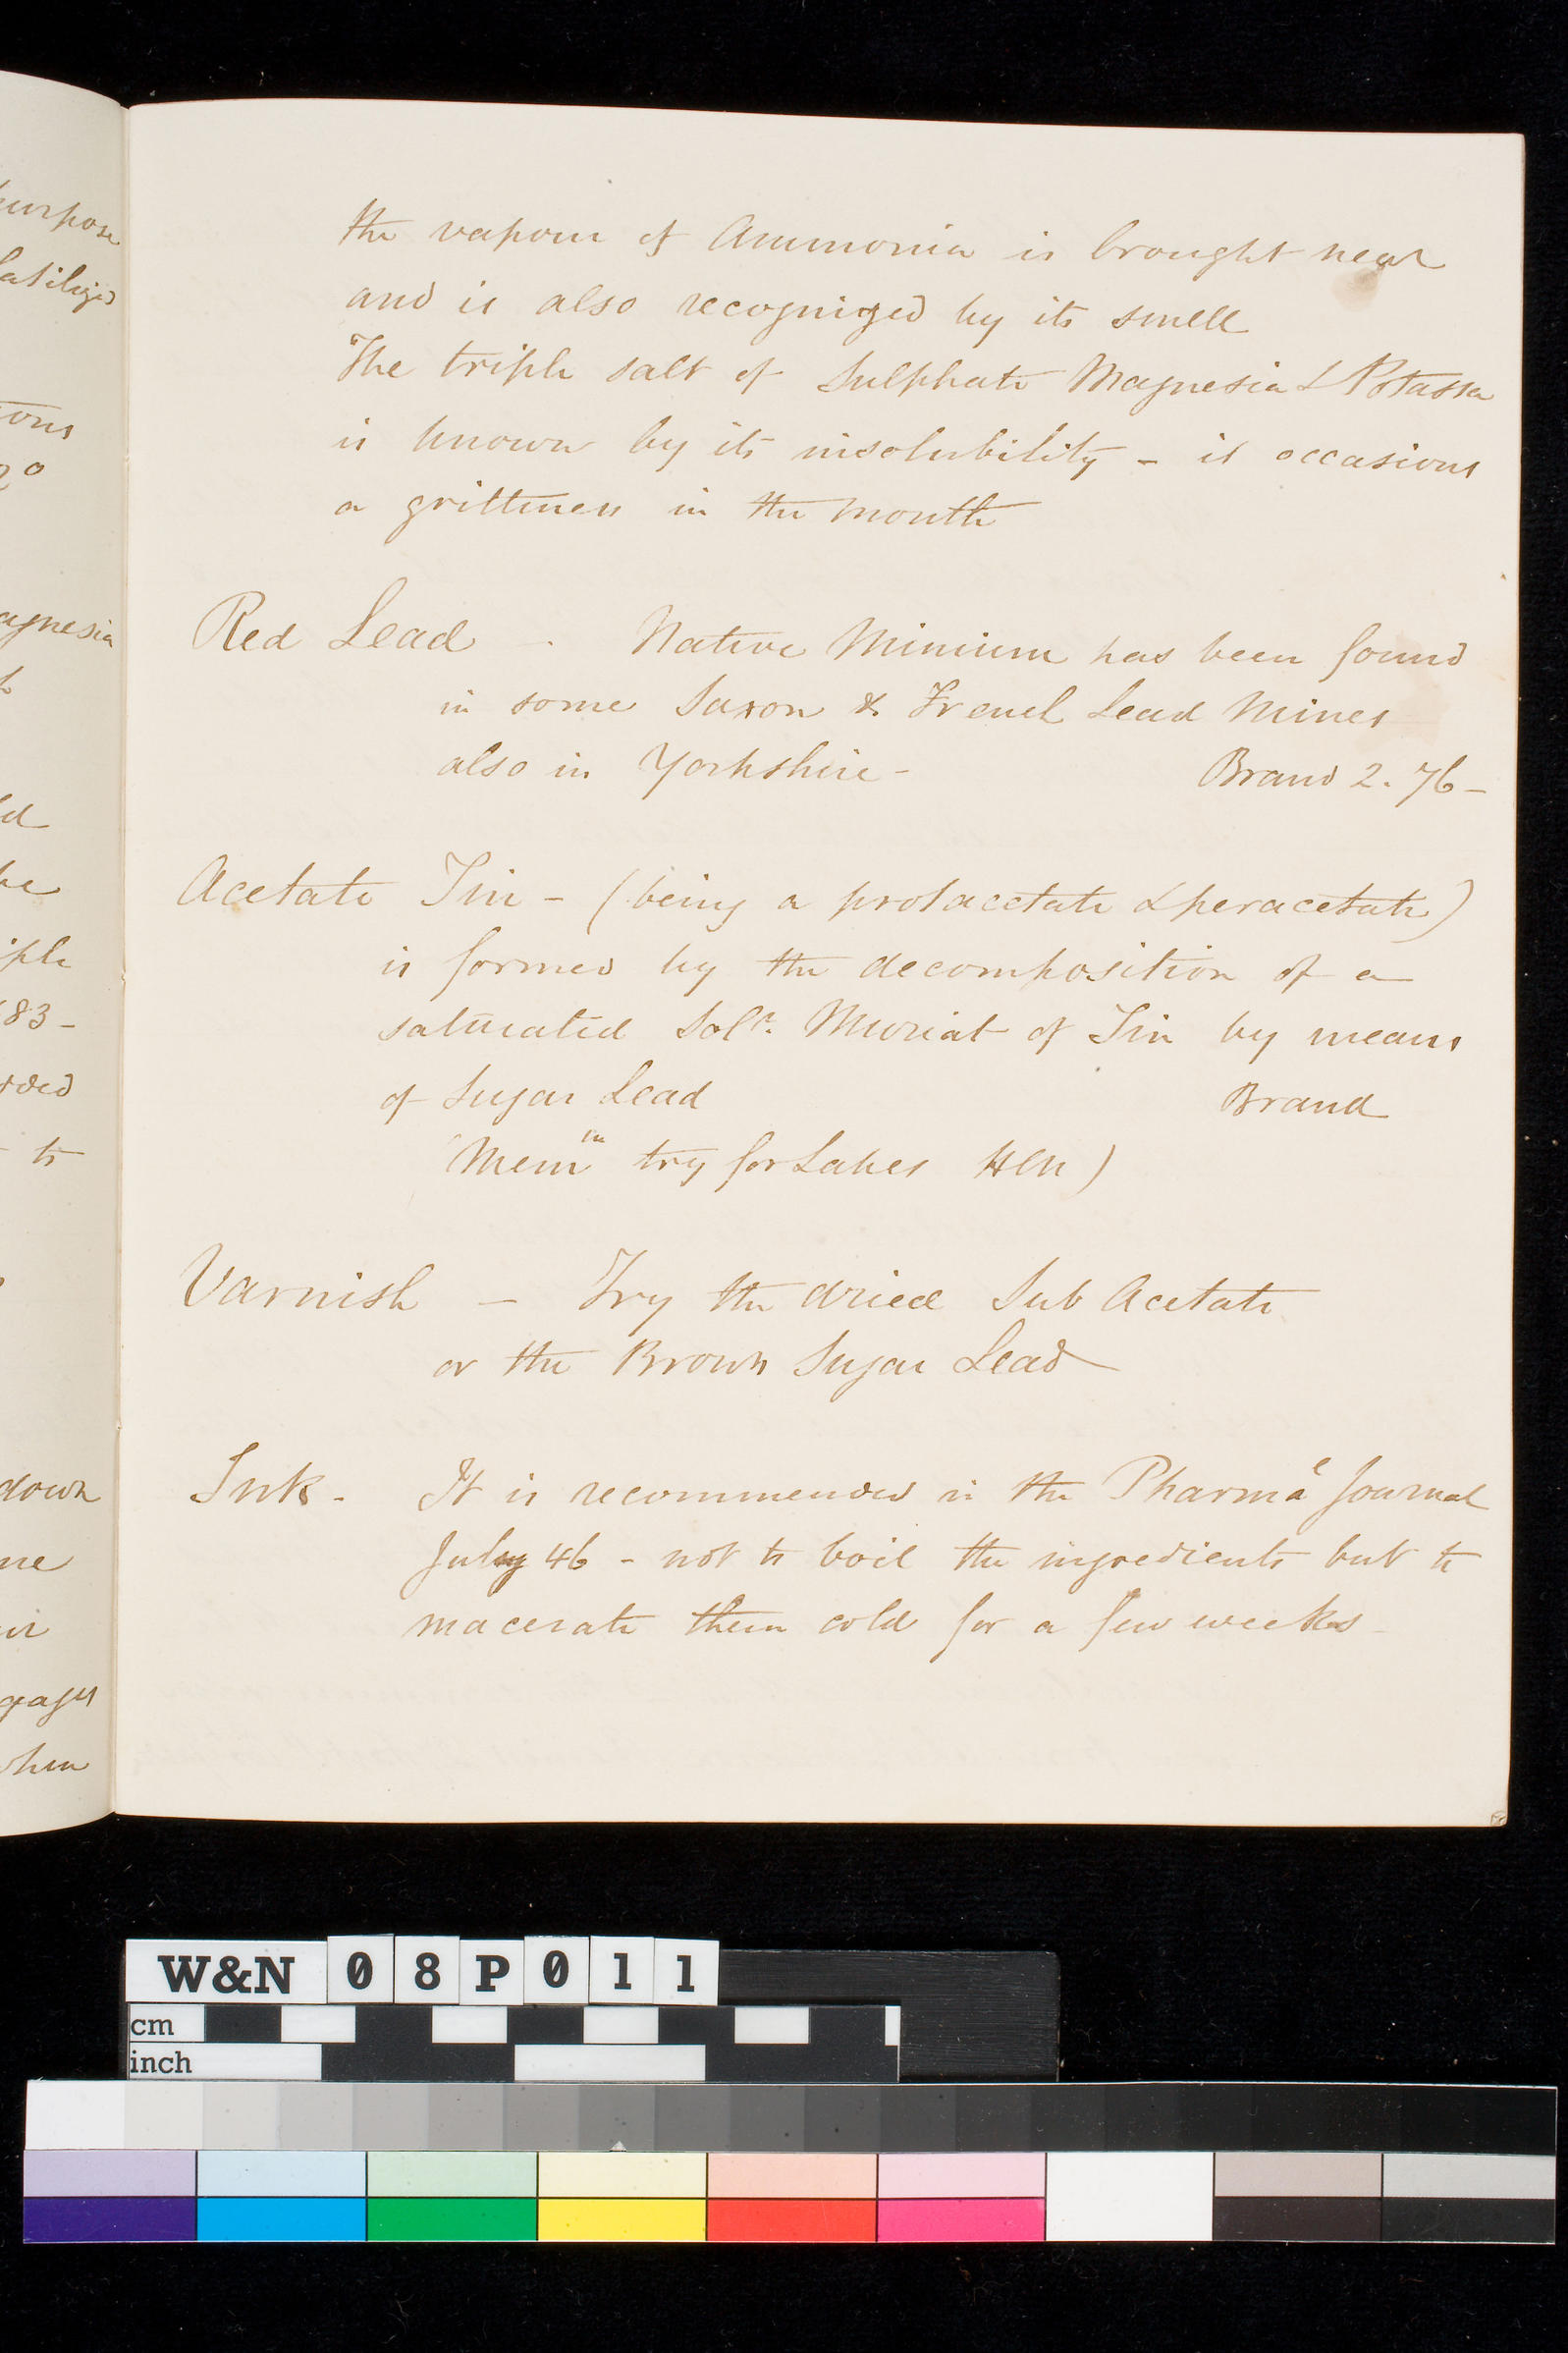 the vapour of Ammonia is brought near
and is also recognized by its smell
The triple salt of Sulphate Magnesia & Potassa
is known by its insolubility - it occasions
a grittiness in the mouth
Red Lead - Native Minium has been found
in some Saxon & French Lead Mines
also in Yorkshire - Brand 2. 76 -
Acetate Tin - (being a protacetate & peracetate)
is formed by the decomposition of a
saturated Soln. Muriat of Tin by means
of Sugar Lead Brand
(Mem try for Lakes HCN)
Varnish - Try the dried Sub Acetate
or the Brown Sugar Lead
Ink - It is recommended in the Pharmal Journal
July 46 - not to boil the ingredients but to
macerate them cold for a few weeks
purpose
tons
agnesia
ld
be
iple
83 -
to
down
me
when
W&N 08P011
cm
inch